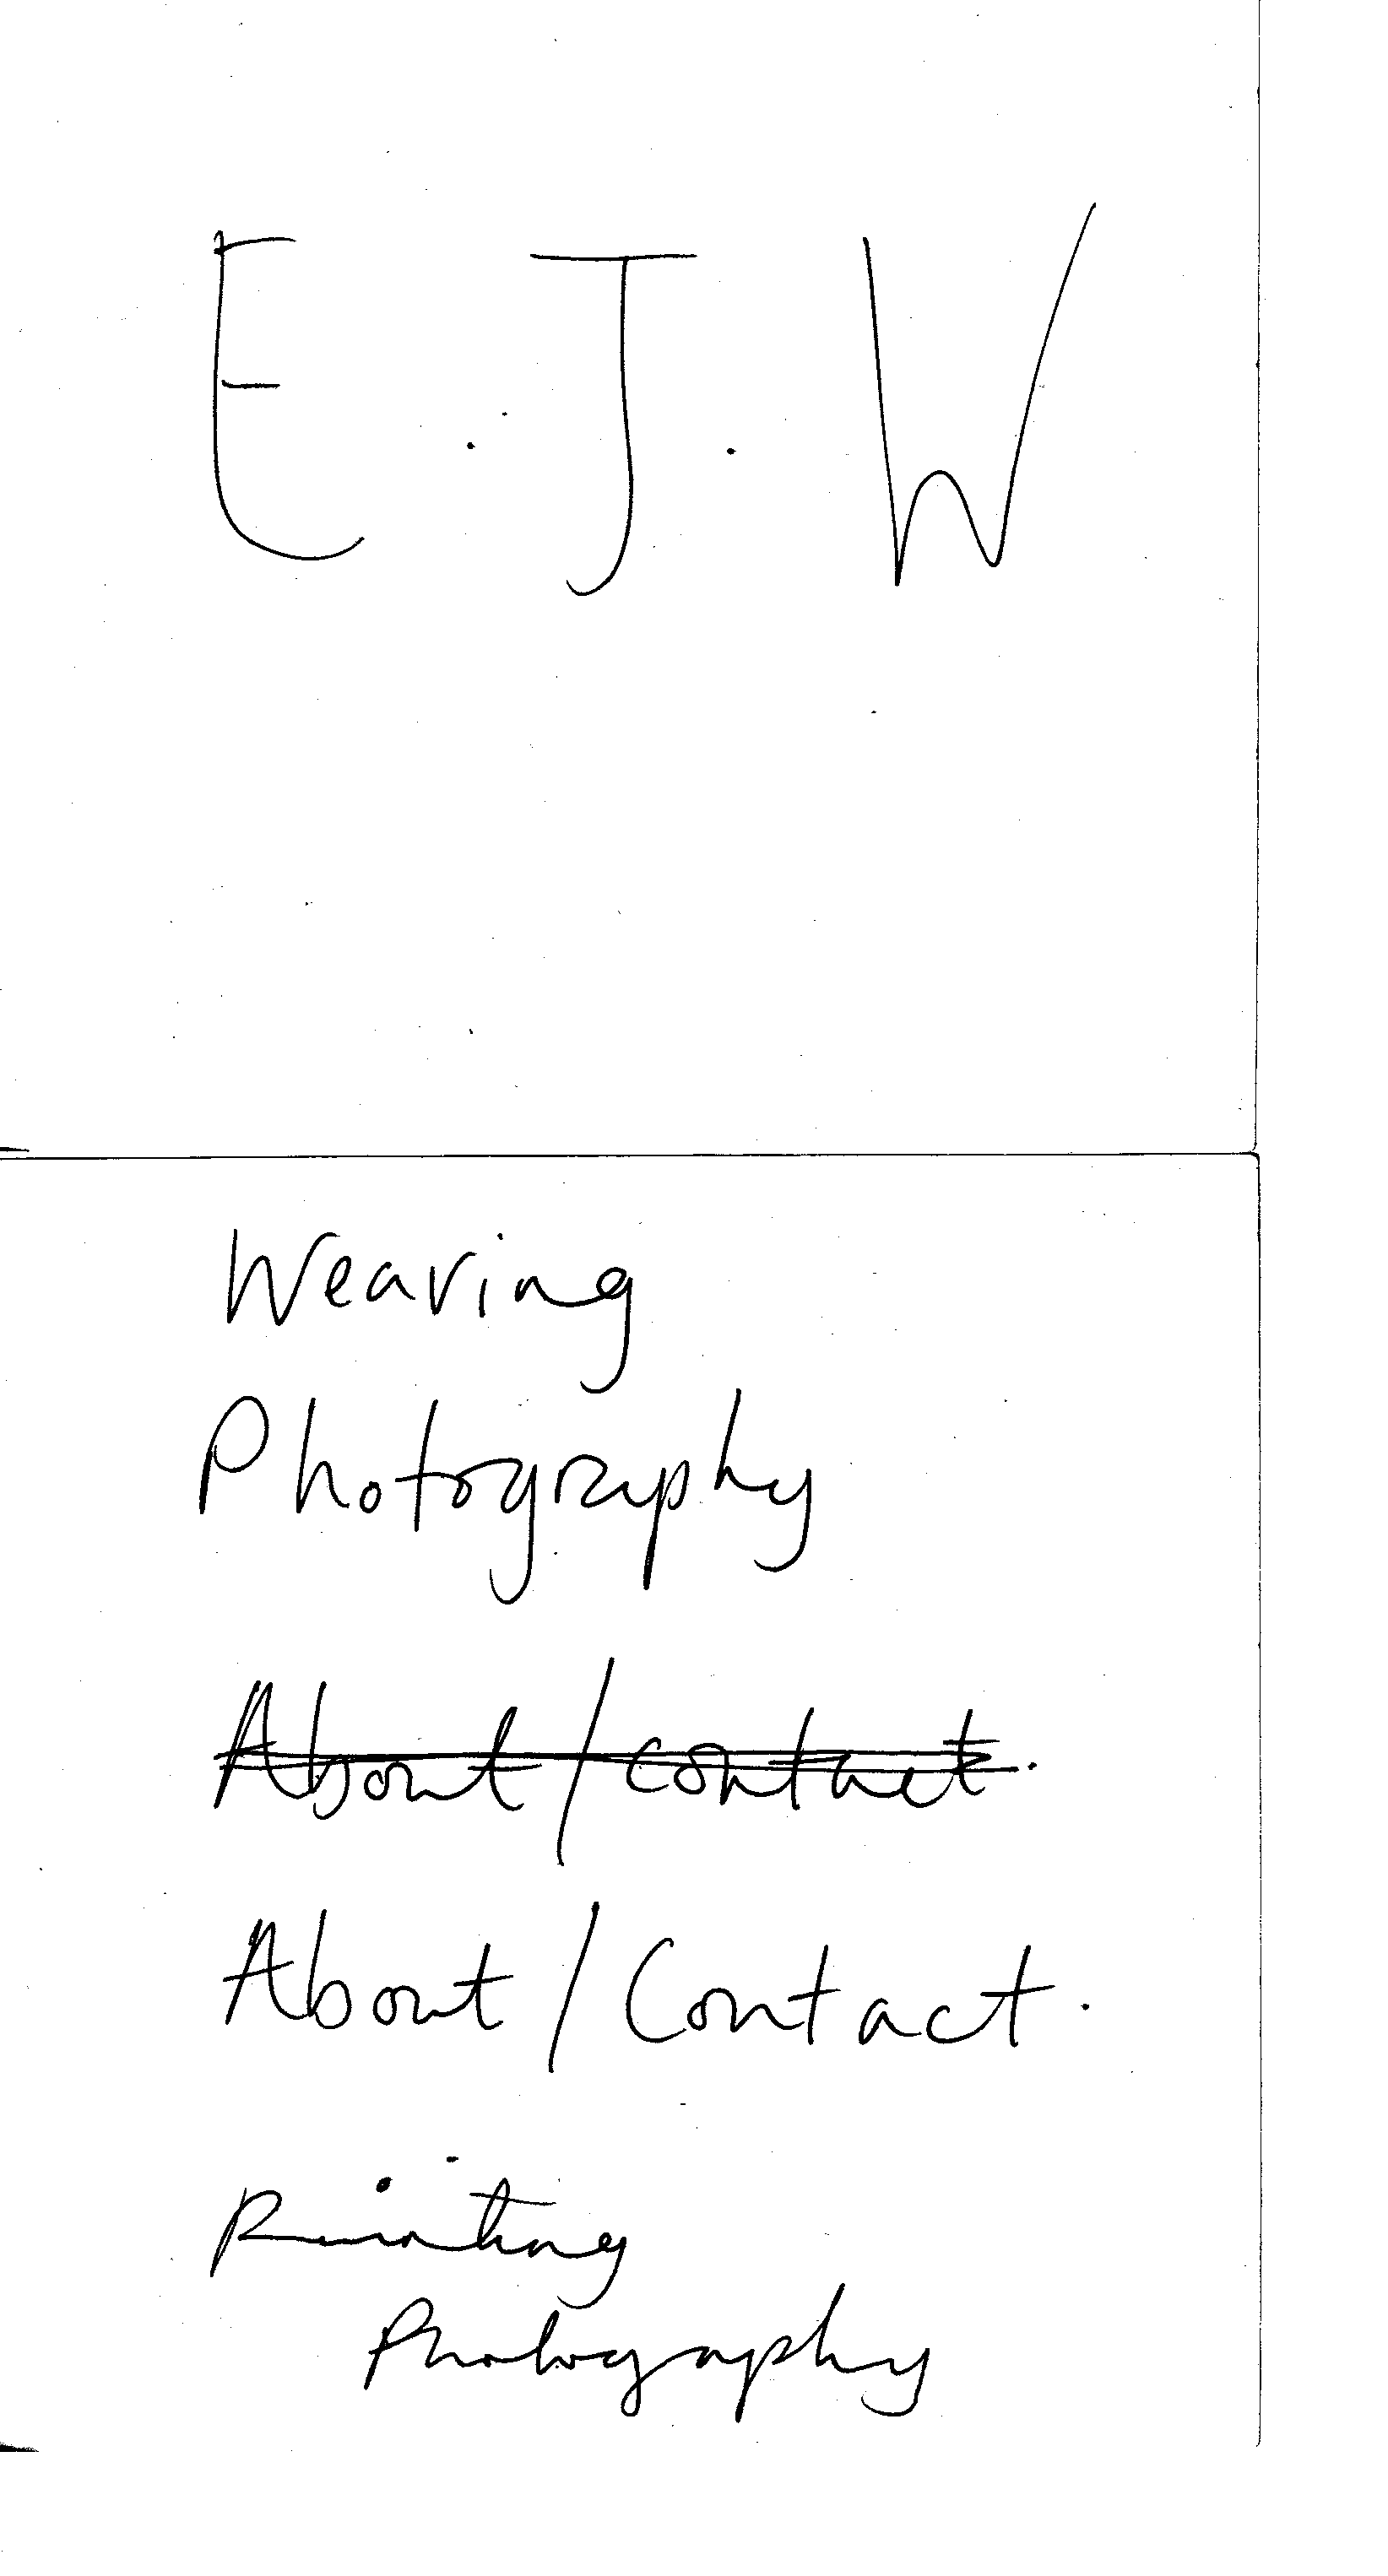 E.J.W
Weaving
Photography
About/contact.
About/Contact.
Painting
Photography